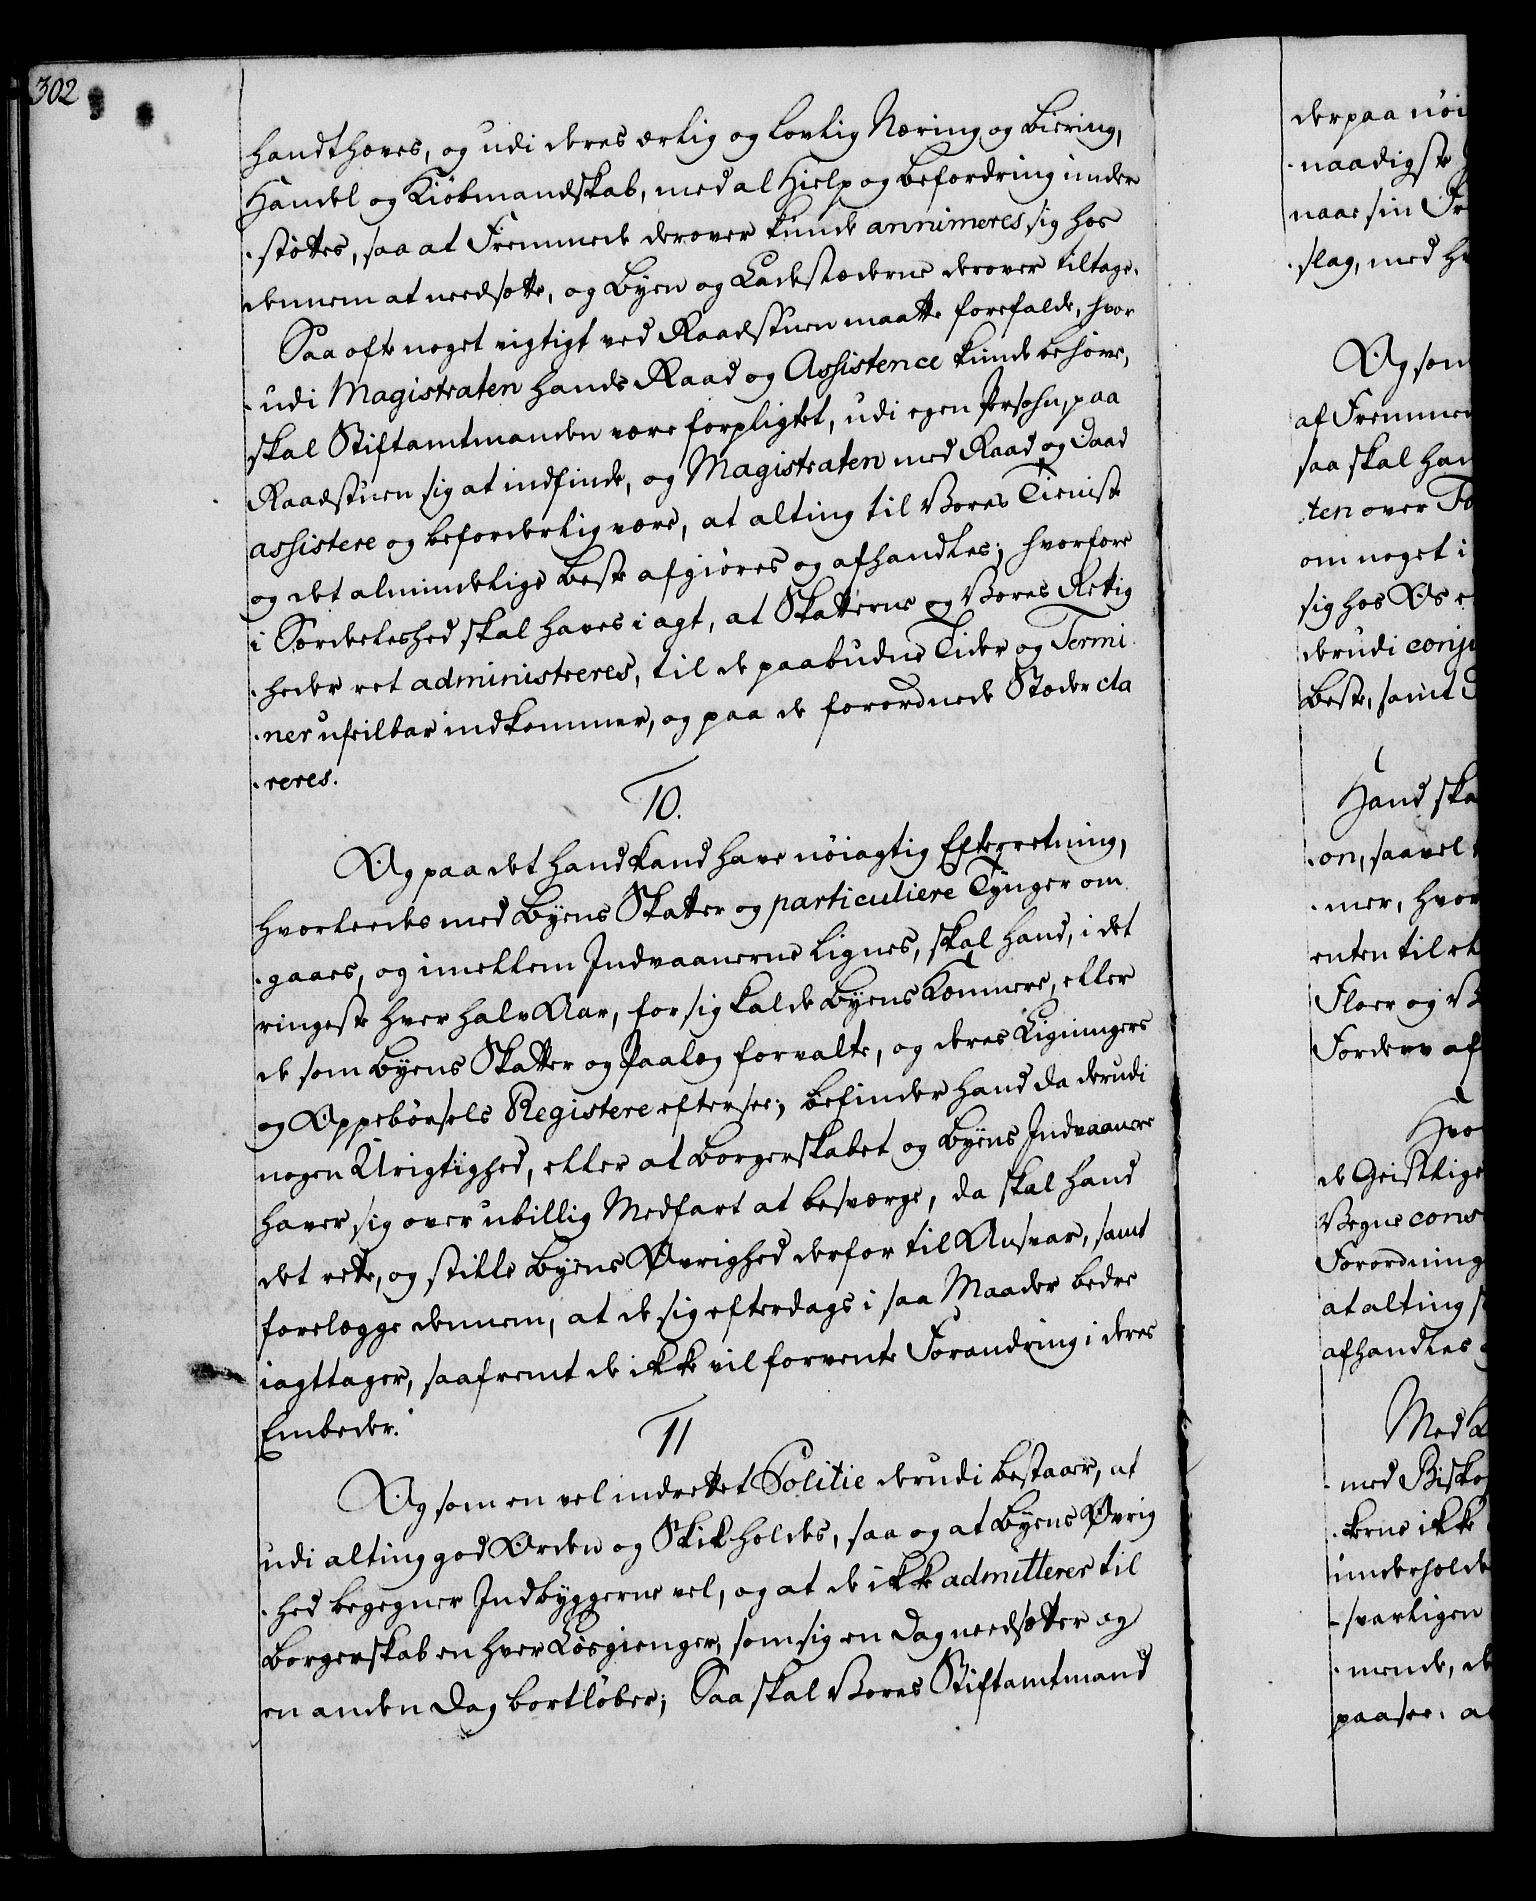 302
handthæves, og udi deres ærlig og lovlig Næring og Biering,
Handel og Kiöbmandskab, med al Hielp og Befordring under
-støttes, saa at Fremmede derover kunde annimeres sig hos
dennem at needsætte, og Byen og Ladestæderne derover tiltage.
Saa ofte noget vigtigt ved Raadstuen maatte forefalde, hvor
-udi Magistraten hands Raad og Assistence kunde behöve,
skal Stiftamtmanden være forpligtet, udi egen Persohn, paa
Raadstuen sig at indfinde, og Magistraten med Raad og Daad
assistere og beforderlig være, at alting til Vores Tieniste
og det almindelige Beste afgiöres og afhandles; hvorfore
i Særdeleshed skal haves i agt, at Skatterne og Vores Rettig
-heder ret administreres, til de paabudne Tider og Termi
-ner ufeilbar indkommer, og paa de forordnede Stæder cla
-reres.
10.
Og paa det hand kand have nöiagtig Efterretning,
hvorleedes med Byens Skatter og particuliere Tynger om
-gaaes, og imellem Indvaanerne lignes, skal hand, i det
ringeste hver halv Aar, for sig kalde Byens Kæmnere, eller
de som Byens Skatter og Paalæg forvalte, og deres Ligninger
og Oppebörsels Registere eftersee; befinder hand da derudi
nogen Urigtighed, eller at Borgerskabet og Byens Indvaanere
haver sig over ubillig Medfart at besværge, da skal hand
det rette, og stille Byens Øvrighed derfor til Ansvar, samt
forelægge dennem, at de sig efterdags i saa Maader bedre
iagttager, saafremt de ikke vil forvente Forandring i deres
Embeder.
11
Og som en vel indrettet Politie derudi bestaaer, at
udi alting god Orden og Skik holdes, saa og at Byens Øvrig
-hed begegner Indbyggerne vel, og at de ikke admitterer til
Borgerskab en hver Lösgienger, som sig en Dag needsætter og
en anden Dag bortlöber; Saa skal Vores Stiftamtmand
derpaa nöi
-naadigste
naar sin Fr
-slag, med
Og som
af Fremmed
saa skal han
-ten over Fo
om noget i
sig hos Os
derudi conj
Beste, samt
Hand ska
-on, saavel
-mer, hvor
enten til et
Floer og
Forderv af
Hvo
de Geistlige
Vegne cons
Forordning
at alting
afhandles
Med
-med Bisko
-kerne ikke
underholde
-svarligen
-mende, de
paasee, a